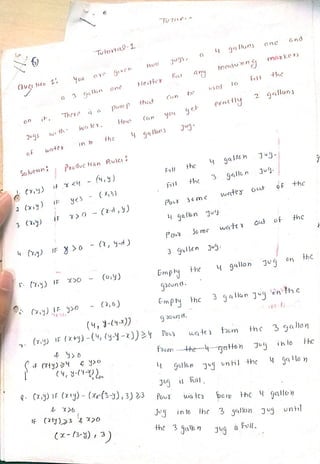 Tutorial-1
Question 1: You are given two jugs, a 4 gallons one and
a 3 gallon one Neither has any measuring markers
on it. There is a pump that can be used to fill the
Jugs with water. How can you get exactly 2 gallons
of water in to the 4 gallons jug.
Solution: Production Rules:
1. (x,y) if x<4 - (4,y) Fill the 4 gallon Jug-
2 (x,y) if y<3 - (x,3) Fill the 3 gallon Jug.
3 (x,y) if x>0 - (x-d,y) Pour some water out of the
4 gallon Jug
4. (x,y) if y>0 - (x,y-d) Pour some water out of the
3 gallon Jug.
5. (x,y) if x>0 - (0,y) Empty the 4 gallon jug on the
ground.
6. (x,y) if y>0 - (x,0) Empty the 3 gallon Jug on the
ground.
(4, y-(4-x))
7. (x,y) if (x+y) - (4, (y-4-x)) ≥4 Pour water from the 3 gallon
& y>0 Jug into the
if (x+y)≥4 & y>0 4 gallon jug until the 4 gallon
(4, y-(4-x)) jug is full.
8. (x,y) if (x+y) - (x-(3-y),3) ≥3 Pour water from the 4 gallon
& x>0 Jug into the 3 gallon jug until
if (x+y)≥3 & x>0 the 3 gallon jug is full.
(x-(3-y), 3)